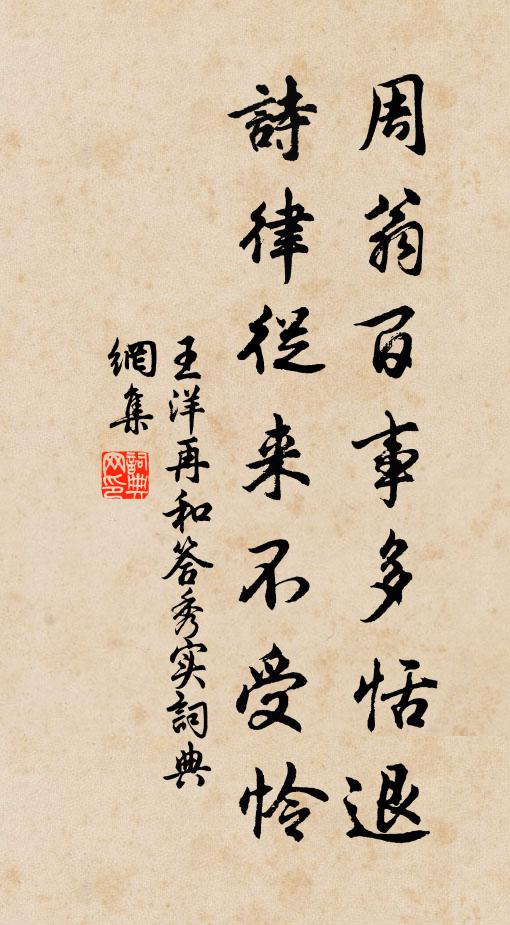 周翁百事多恬退
詩律從来不受怜
王洋再和答秀实詞典
網集
詞典
网印